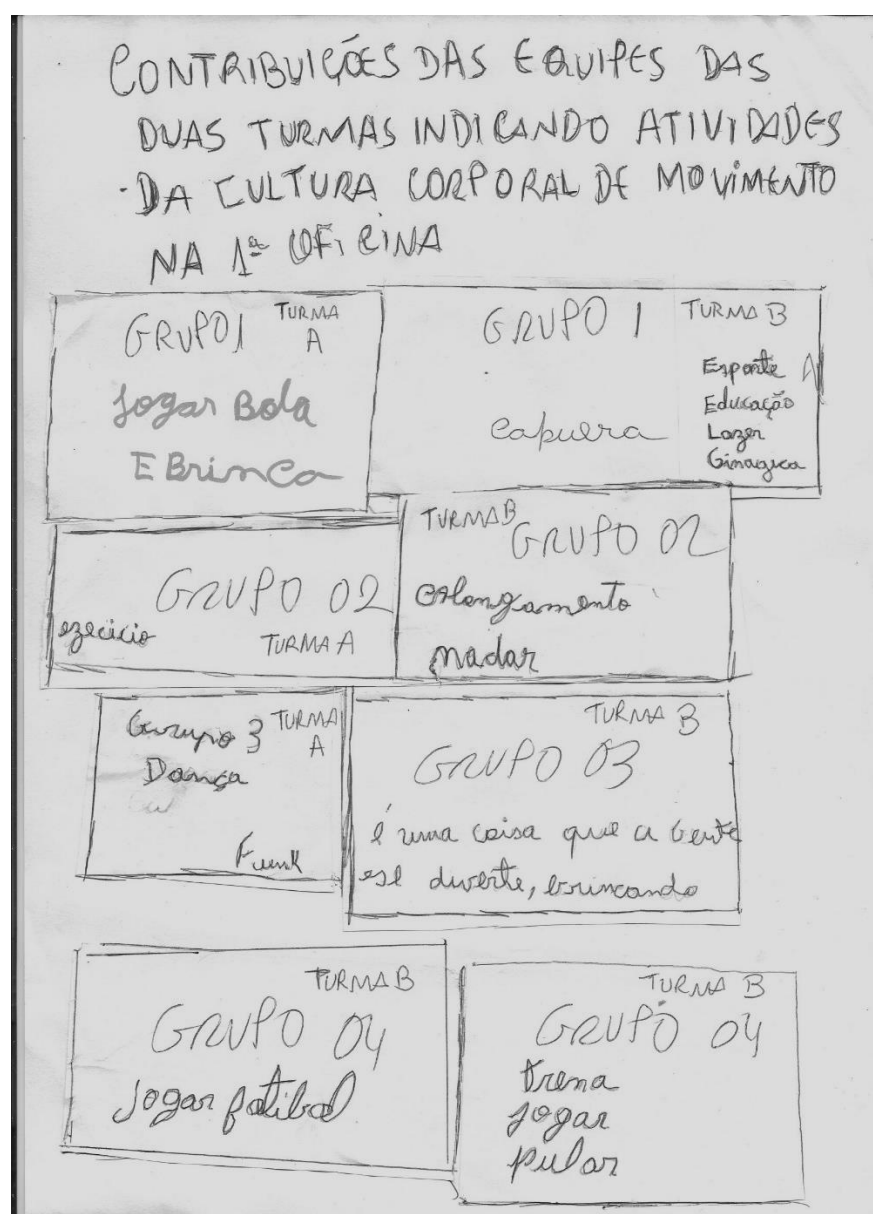 CONTRIBUIÇÕES DAS EQUIPES DAS
DUAS TURMAS INDICANDO ATIVIDADES
DA CULTURA CORPORAL DE MOVIMENTO
NA 1ª OFICINA
GRUPO 1 TURMA A
Jogar Bola
E Brinca
GRUPO 1 TURMA B
Capuera
Esporte
Educação
Lazer
Ginagica
GRUPO 02
ezecicio TURMA A
TURMA B GRUPO 02
alongamento
nadar
Gurupo 3 TURMA A
Dança
Funk
TURMA B
GRUPO 03
é uma coisa que a gente
ese diverte, brincando
TURMA B
GRUPO 04
Jogar fatibol
TURMA B
GRUPO 04
trena
jogar
pular